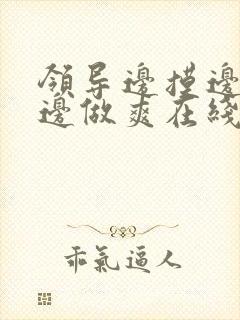 領导邊摸邊
邊做爽在綫
乖氣逼人